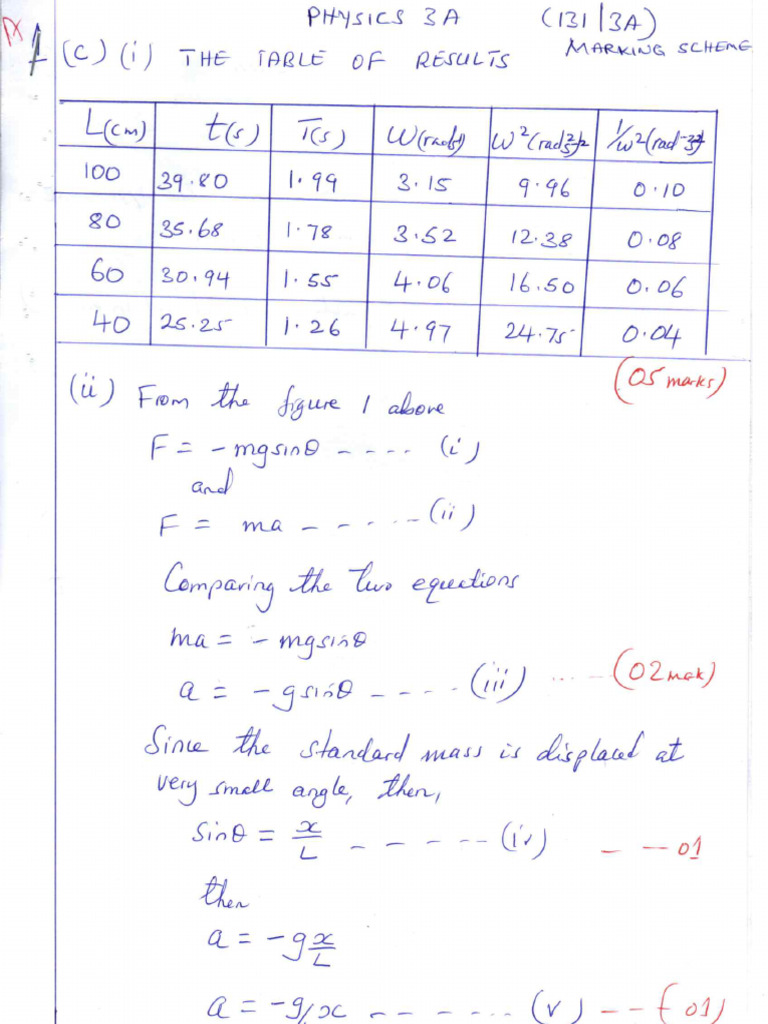 PHYSICS 3A (131/3A)
MARKING SCHEME
1 (c) (i) THE TABLE OF RESULTS
L(cm) t(s) T(s) W(rad/s) W²(rad²/s²) 1/w²(rad⁻²s²)
100 39.80 1.99 3.15 9.96 0.10
80 35.68 1.78 3.52 12.38 0.08
60 30.94 1.55 4.06 16.50 0.06
40 25.25 1.26 4.97 24.75 0.04
(05 marks)
(ii) From the figure 1 above
F = -mgsinθ ---- (i)
and
F = ma ------ (ii)
Comparing the two equations
ma = -mgsinθ
a = -gsinθ ---- (iii) ---- (02 mak)
Since the standard mass is displaced at
very small angle, then,
sinθ = x/L ------ (iv) -- 01
then
a = -g x/L
a = -g/x ------ (v) -- (01)